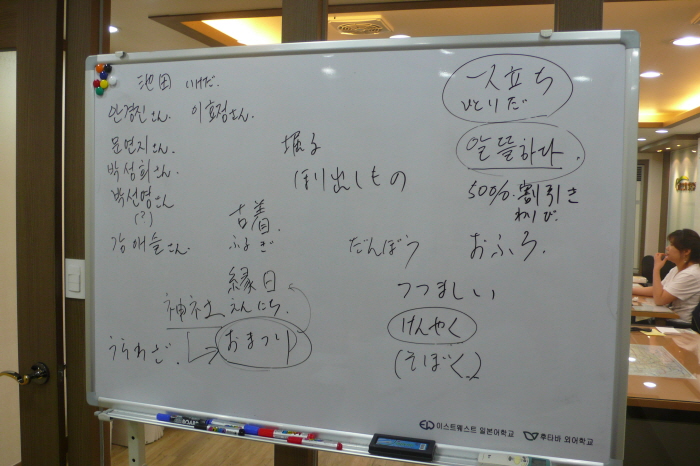 池田 いけだ.
안경진さん 이효정さん.
문연지さん.
박성희さん.
박선영さん
(?)
강애슬さん.
掘る
ほり出しもの
古着.
ふるぎ
縁日
神社 えんにち.
おまつり
うらわざ.
だんぼう おふろ.
つつましい
けんやく
(そぼく.)
一人立ち
ひとりだ
알뜰하다.
50% 割引き
わりび.
이스트웨스트 일본어학교
후타바 외어학교